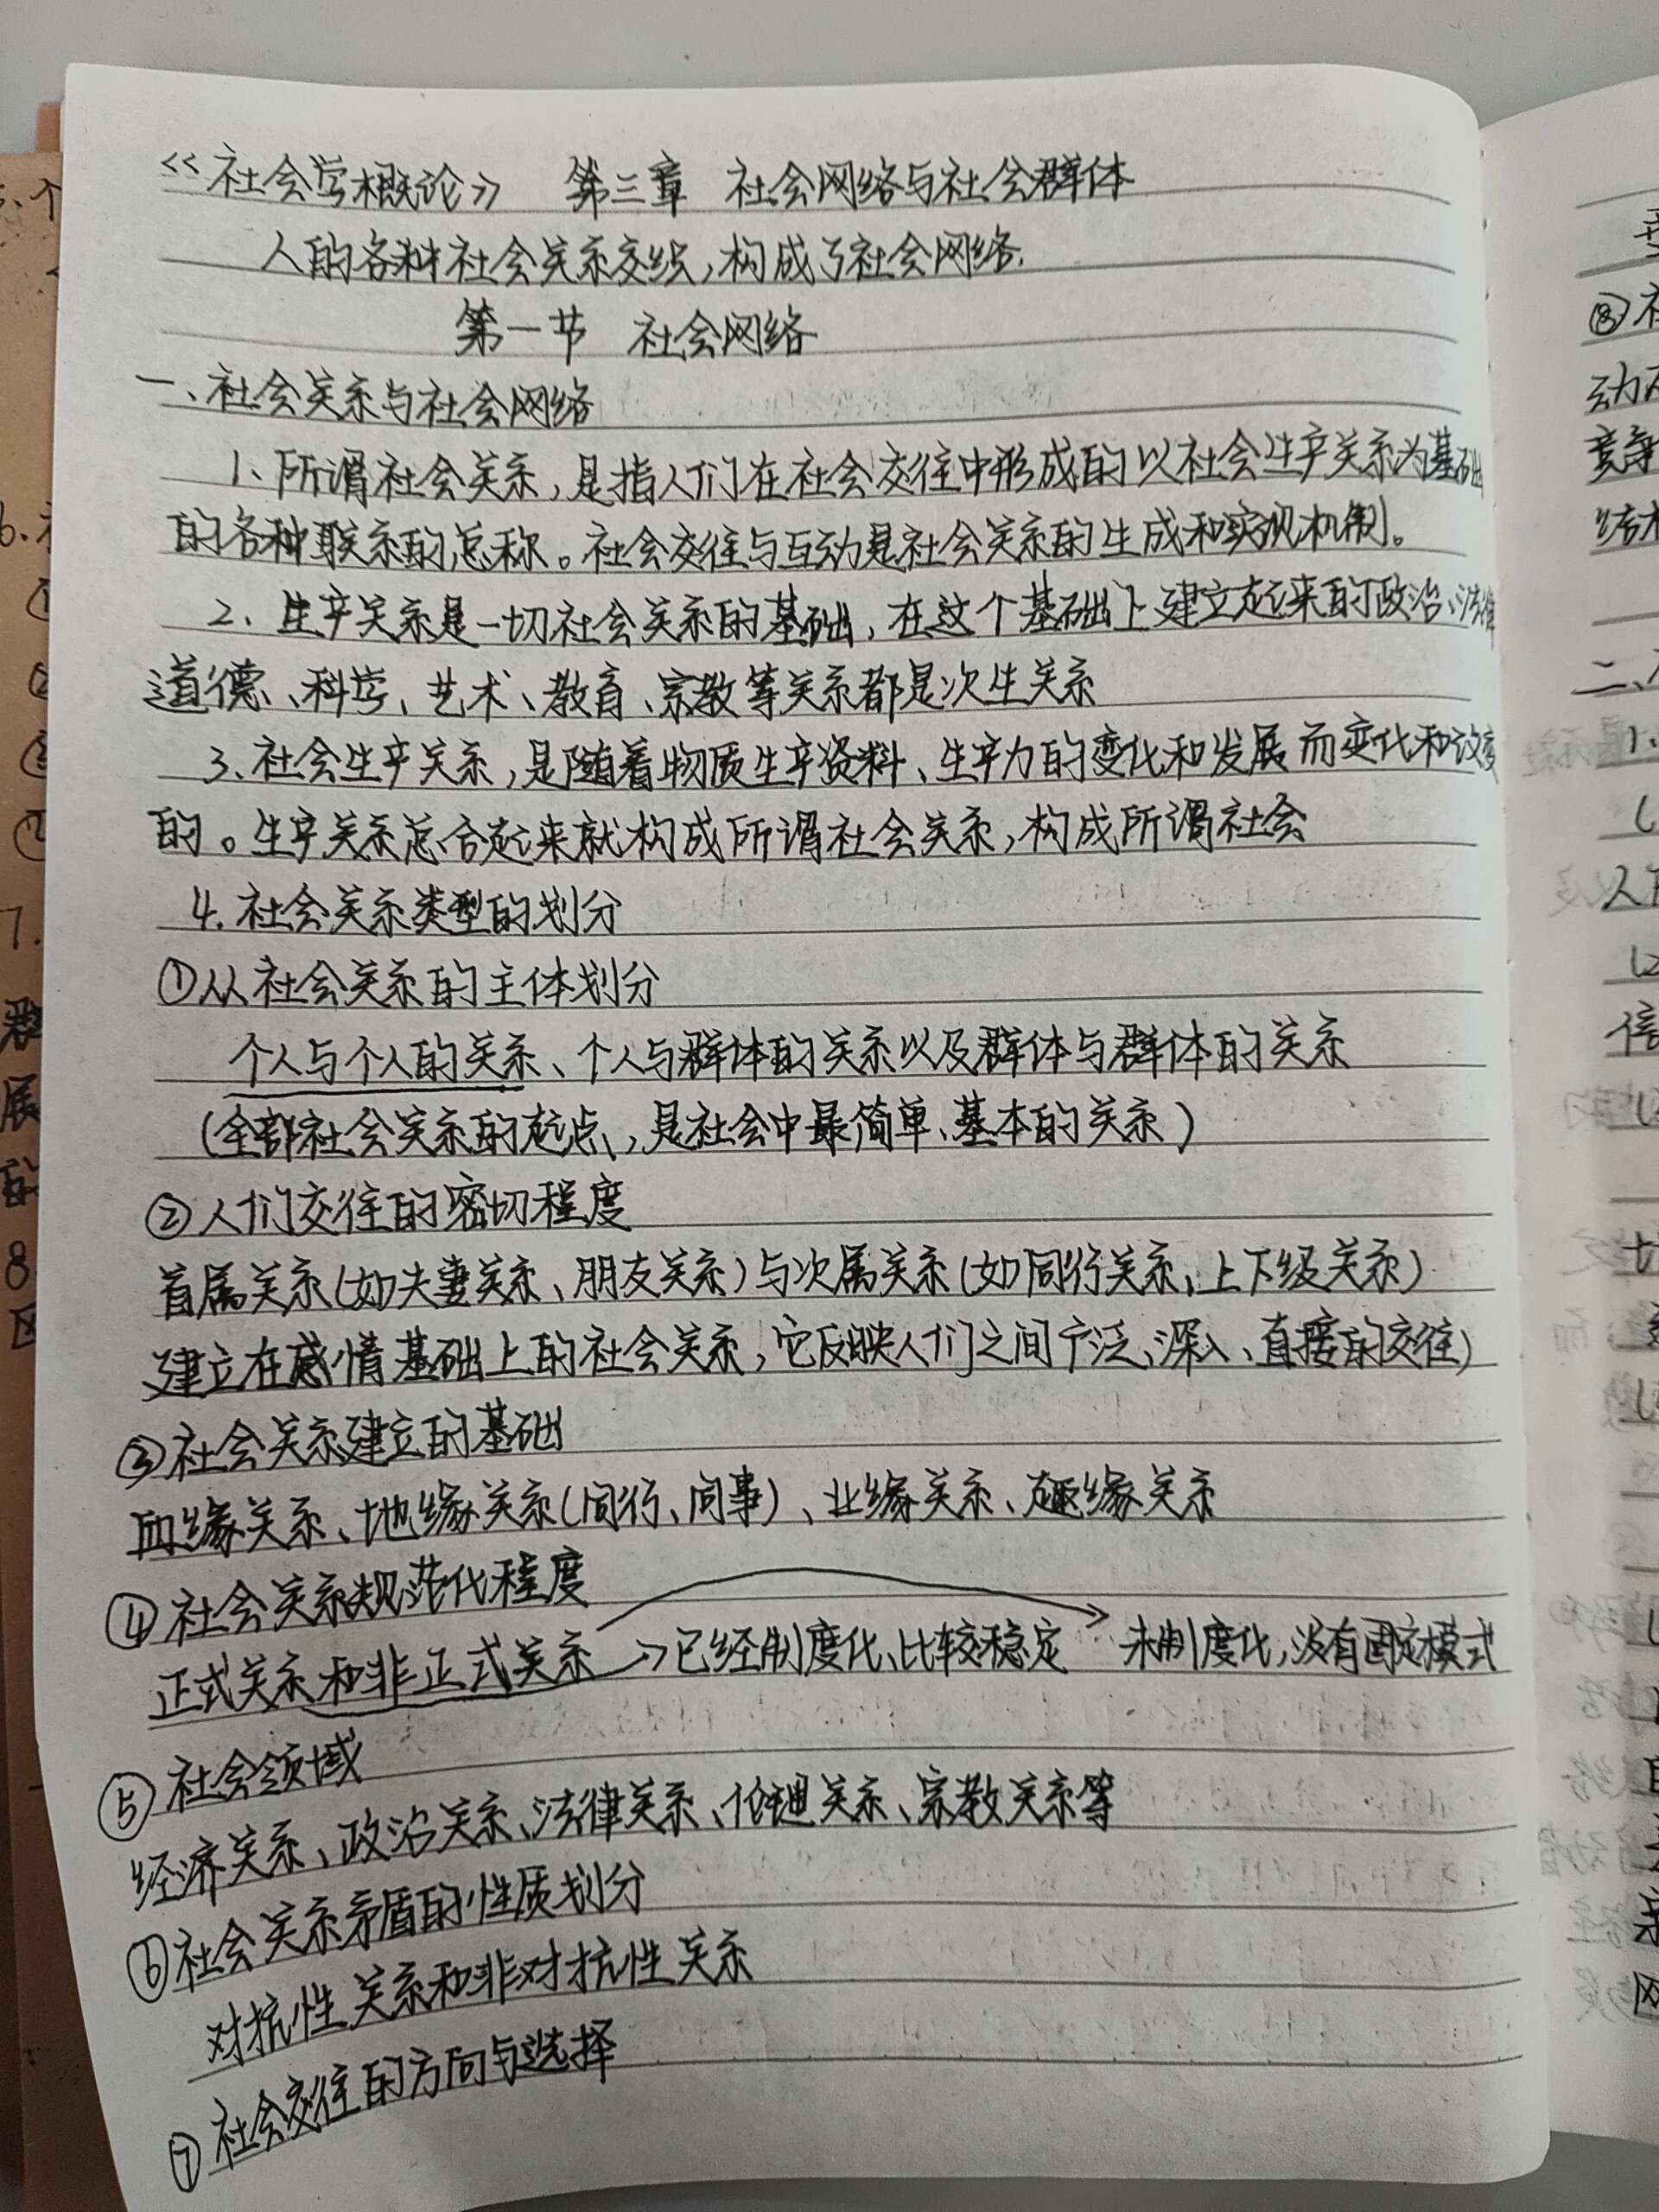 《社会学概论》 第三章 社会网络与社会群体
人的各种社会关系交织，构成了社会网络.
第一节 社会网络
一、社会关系与社会网络
1、所谓社会关系，是指人们在社会交往中形成的以社会生产关系为基础
的各种联系的总称。社会交往与互动是社会关系的生成和实现机制。
2、生产关系是一切社会关系的基础，在这个基础上建立起来的政治、法律
道德、科学、艺术、教育、宗教等关系都是次生关系
3、社会生产关系，是随着物质生产资料、生产力的变化和发展而变化和改变
的。生产关系总合起来就构成所谓社会关系，构成所谓社会
4.社会关系类型的划分
①从社会关系的主体划分
个人与个人的关系、个人与群体的关系以及群体与群体的关系
(全部社会关系的起点，是社会中最简单、基本的关系)
②人们交往的密切程度
首属关系(如夫妻关系、朋友关系)与次属关系(如同行关系、上下级关系)
建立在感情基础上的社会关系，它反映人们之间广泛、深入、直接的交往)
③社会关系建立的基础
血缘关系、地缘关系(同行、同事)、业缘关系、趣缘关系
④社会关系规范化程度
正式关系和非正式关系→已经制度化、比较稳定 未制度化，没有固定模式
⑤社会领域
经济关系、政治关系、法律关系、伦理关系、宗教关系等
⑥社会关系矛盾的性质划分
对抗性关系和非对抗性关系
⑦社会交往的方向与选择